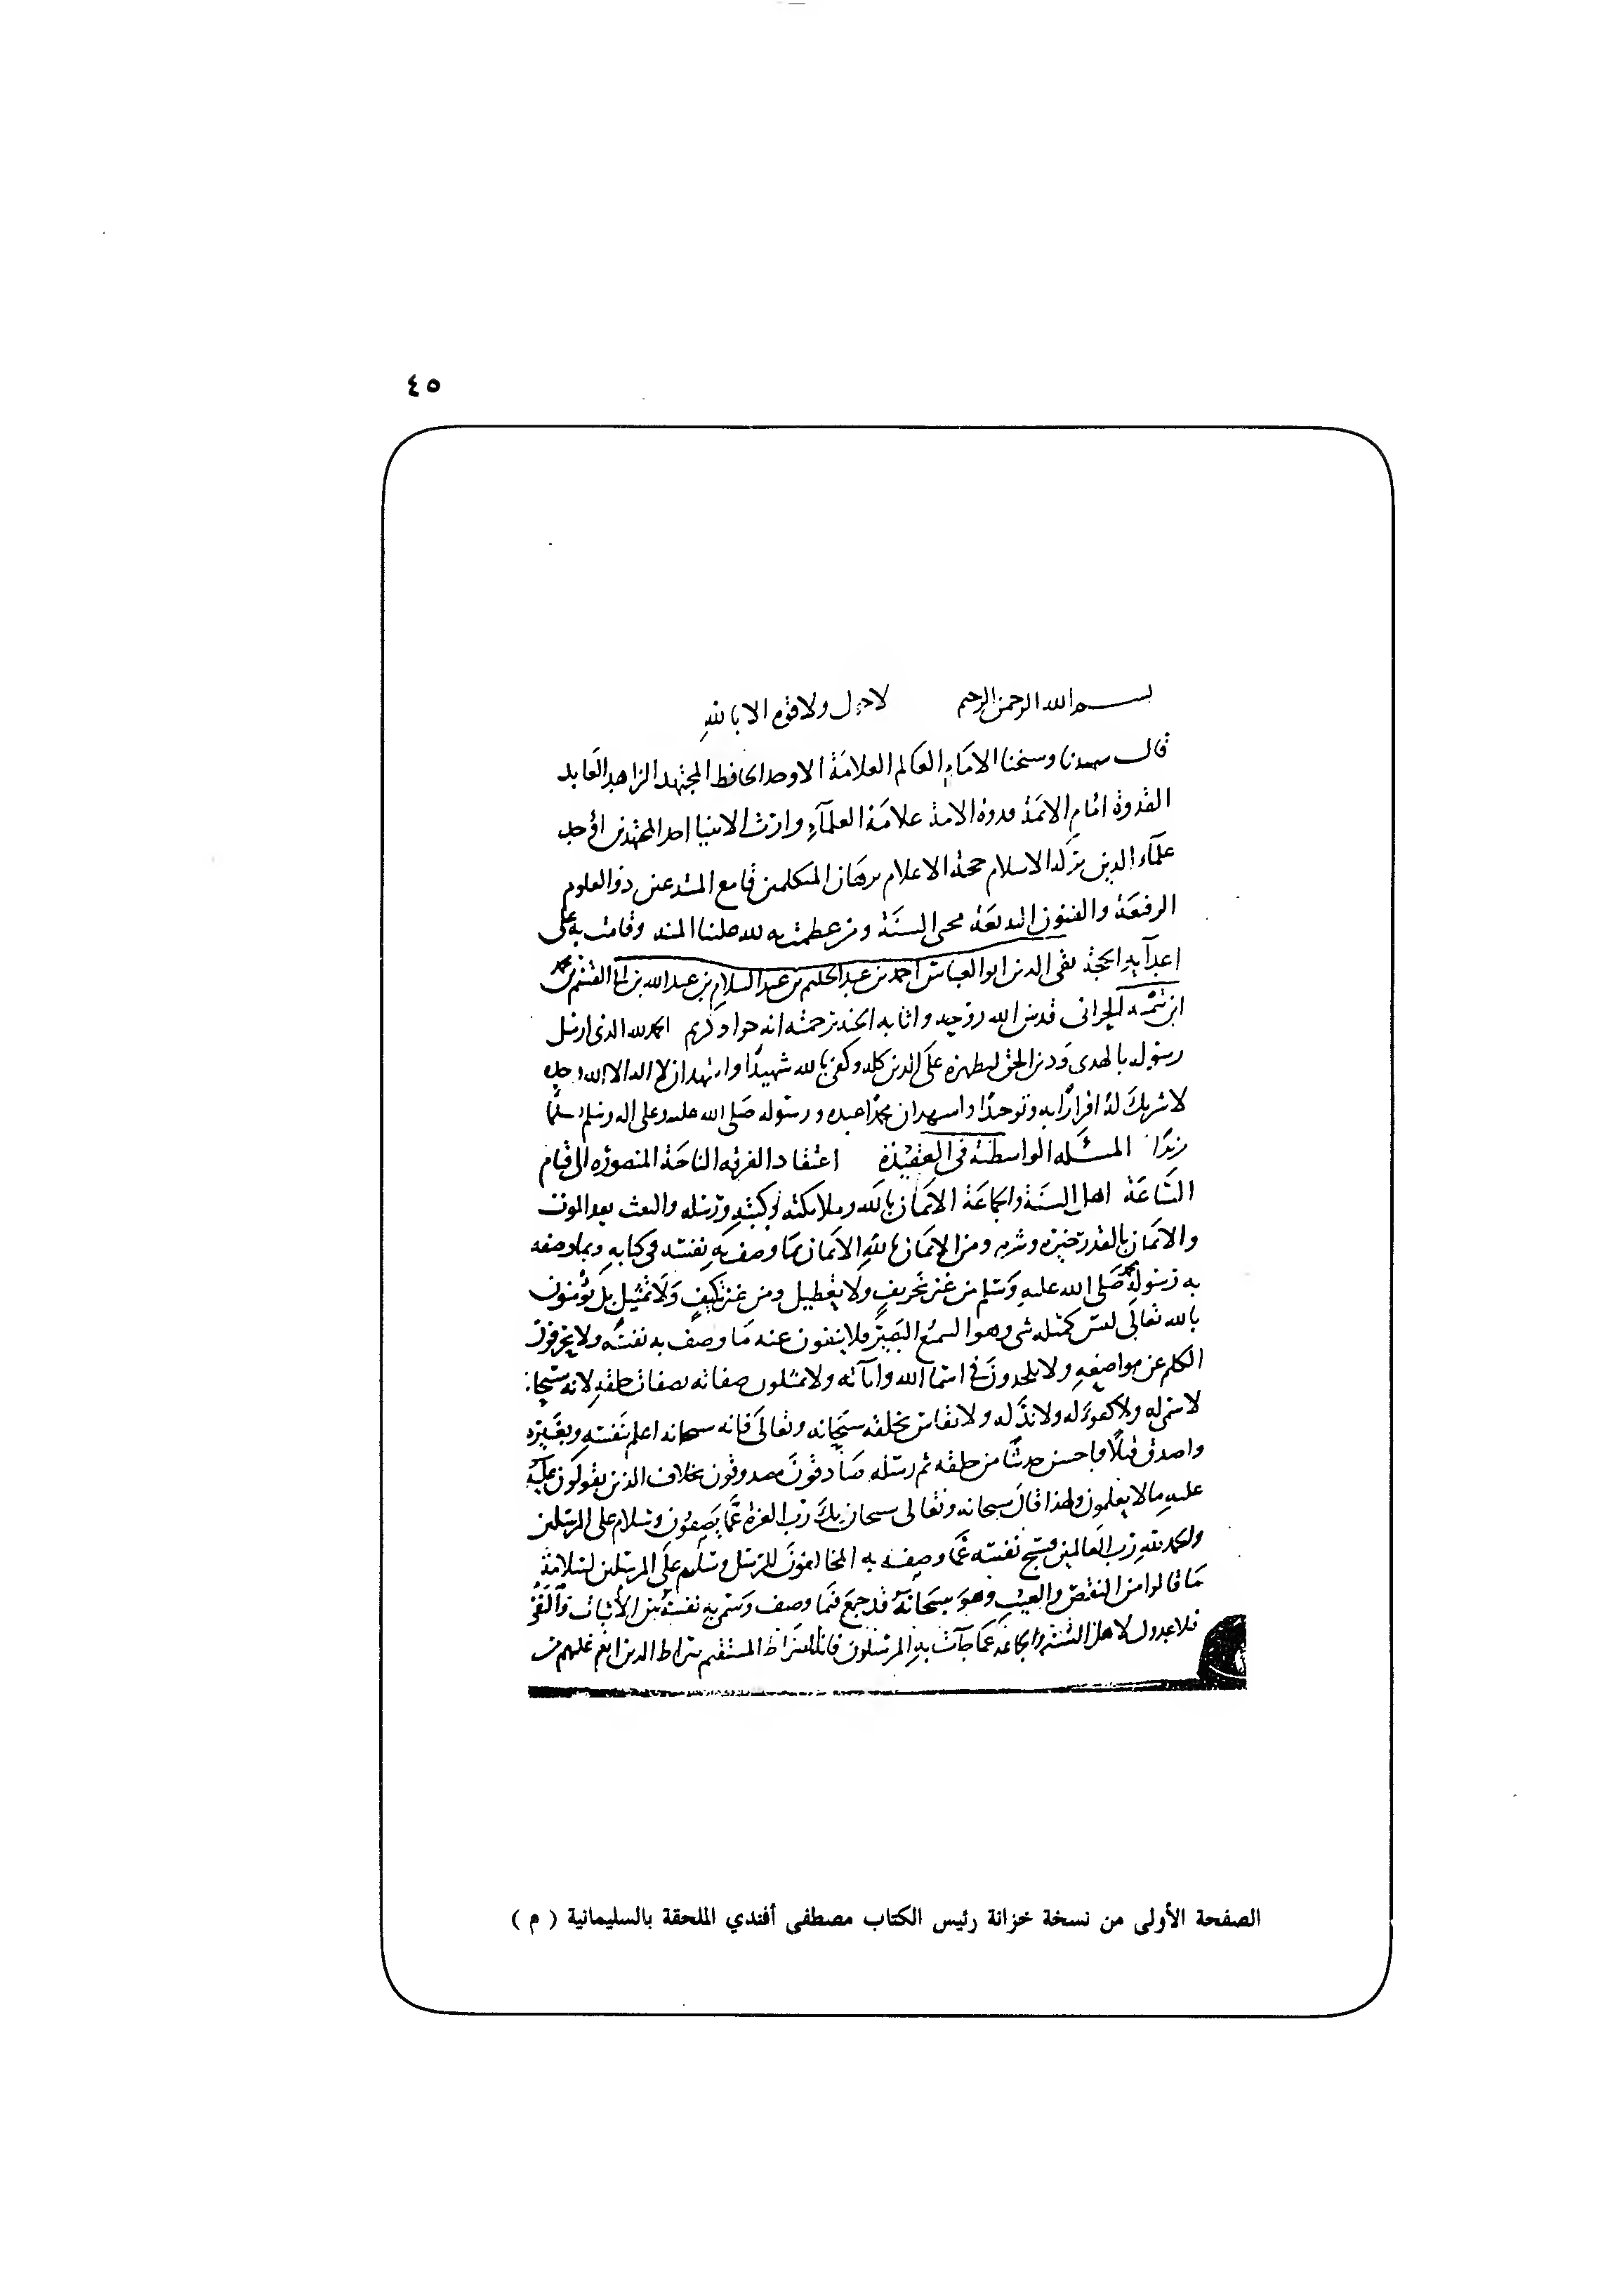 ٤٥
بسم الله الرحمن الرحيم لا حول ولا قوة الا بالله
قال سيدنا وشيخنا الامام العالم العلامة الاوحد الحافظ المجتهد الزاهد العابد
القدوة امام الائمة قدوة الامة علامة العلماء وارث الانبيا احد المجتهدين اوحد
علماء الدين بركة الاسلام حجة الاعلام برهان المتكلمين قامع المبتدعين ذو العلوم
الرفيعة والفنون البديعة محيي السنة ومن عظمت به لله علينا المنة وقامت به على
اعدايه الحجة تقي الدين ابو العباس احمد بن عبد الحليم بن عبد السلام بن عبد الله بن ابي القسم بن محمد
ابن تيمية الحراني قدس الله روحه واثابه الجنة برحمته انه جواد كريم الحمد لله الذي ارسل
رسوله بالهدى ودين الحق ليظهره على الدين كله وكفى بالله شهيدا واشهد ان لا اله الا الله وحده
لا شريك له اقرارا به وتوحيدا واشهد ان محمدا عبده ورسوله صلى الله عليه وعلى اله وسلم تسليما
مزيدا المسئلة الواسطية في العقيدة اعتقاد الفرقة الناجية المنصورة الى قيام
الساعة اهل السنة والجماعة الايمان بالله وملائكته وكتبه ورسله والبعث بعد الموت
والايمان بالقدر خيره وشره ومن الايمان بالله الايمان بما وصف به نفسه في كتابه وبما وصفه
به رسوله محمد صلى الله عليه وسلم من غير تحريف ولا تعطيل ومن غير تكييف ولا تمثيل بل يؤمنون
بالله تعالى ليس كمثله شي وهو السميع البصير فلا ينفون عنه ما وصف به نفسه ولا يحرفون
الكلم عن مواضعه ولا يلحدون في اسما الله واياته ولا يمثلون صفاته بصفات خلقه لانه سبحانه
لا سمي له ولا كفو له ولا ند له ولا يقاس بخلقه سبحانه وتعالى فانه سبحانه اعلم بنفسه وبغيره
واصدق قيلا واحسن حديثا من خلقه ثم رسله صادقون مصدوقون بخلاف الذين يقولون عليه
عليه ما لا يعلمون ولهذا قال سبحانه وتعالى سبحان ربك رب العزة عما يصفون وسلام على المرسلين
والحمد لله رب العالمين فسبح نفسه عما وصفه به المخالفون للرسل وسلم على المرسلين لسلامة
ما قالوا من النقص والعيب وهو سبحانه قد جمع فيما وصف وسمى به نفسه بين الاثبات والنفي
فلا عدول لاهل السنة والجماعة عما جآت به المرسلون فانه الصراط المستقيم صراط الذين انعم عليهم من
الصفحة الأولى من نسخة خزانة رئيس الكتاب مصطفى أفندي الملحقة بالسليمانية ( م )